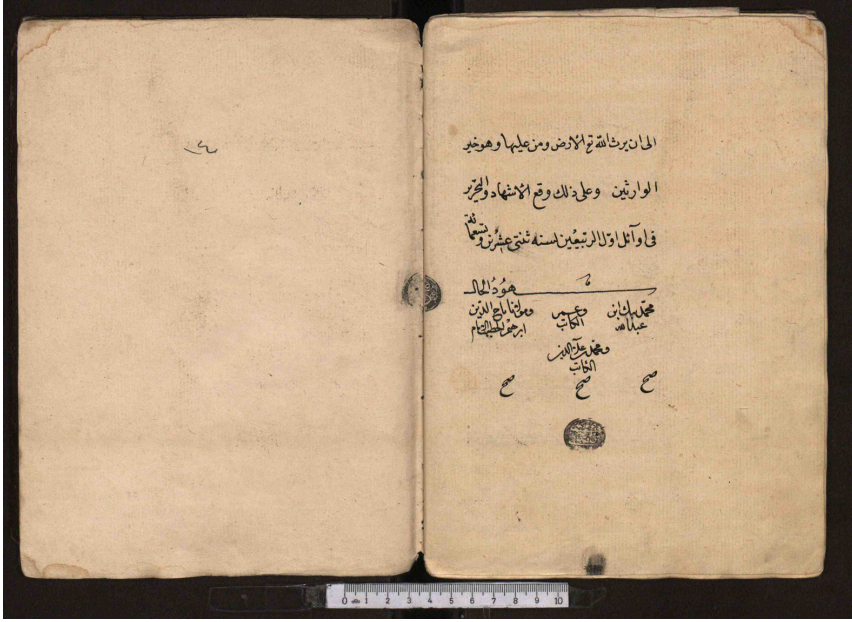 الى ان يرث الله تع الارض ومن عليها وهو خير
الوارثين وعلى ذلك وقع الاشهاد والتحرير
فى اوآئل اول الربيعين لسنه ثنتى عشرين وتسعمائة
شهود الحال
محمد بك ابن عبدالله
وعمر الكاتب
ومولانا تاج الدين ابرهيم الخطيب
ومحمد بن علاء الدين الكاتب
صح صح صح
0 1 2 3 4 5 6 7 8 9 10